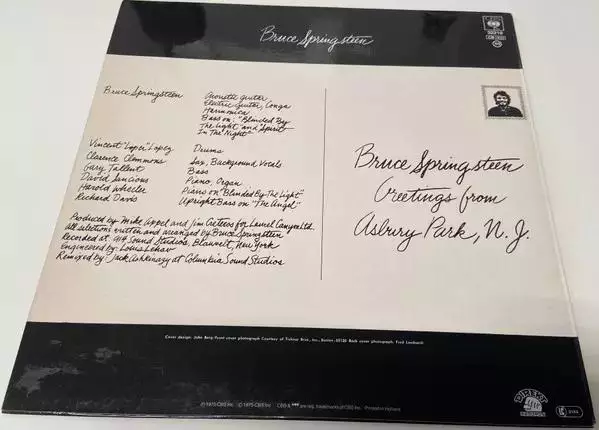 Bruce Springsteen
CBS
32210
Bruce Springsteen
Acoustic guitar
Electric guitar, Conga
Harmonica
Bass on: "Blinded By
The Light" and "Spirit
In The Night"
Vincent "Loper" Lopez Drums
Clarence Clemmons Sax, Background Vocals
Gary Tallent Bass
David Sancious Piano, Organ
Harold Wheeler Piano on "Blinded By The Light"
Richard Davis Upright Bass on "The Angel"
Produced by Mike Appel and Jim Cretecos for Laurel Canyon Ltd.
All selections written and arranged by Bruce Springsteen
Recorded at 914 Sound Studios, Blauvelt, New York
Engineered by Louis Lahav
Remixed by Jack Ashkinazy at Columbia Sound Studios
Bruce Springsteen
Greetings from
Asbury Park, N.J.
Cover design: John Berg Front cover photograph Courtesy of Tichnor Bros., Inc., Boston, 02120 Back cover photograph, Fred Lombardi
Ⓟ 1973 CBS Inc. © 1973 CBS Inc. CBS & are reg. trademarks of CBS Inc. Printed in Holland